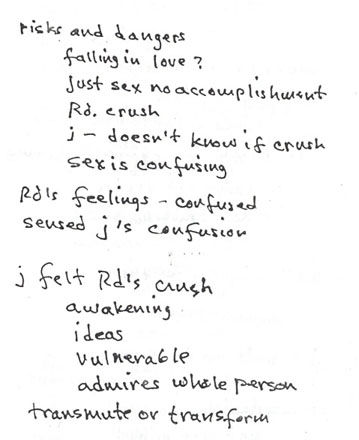 risks and dangers
falling in love?
Just sex no accomplishment
Rd. crush
j - doesn't know if crush
sex is confusing
Rd's feelings - confused
sensed j's confusion
j felt Rd's crush
awakening
ideas
vulnerable
admires whole person
transmute or transform